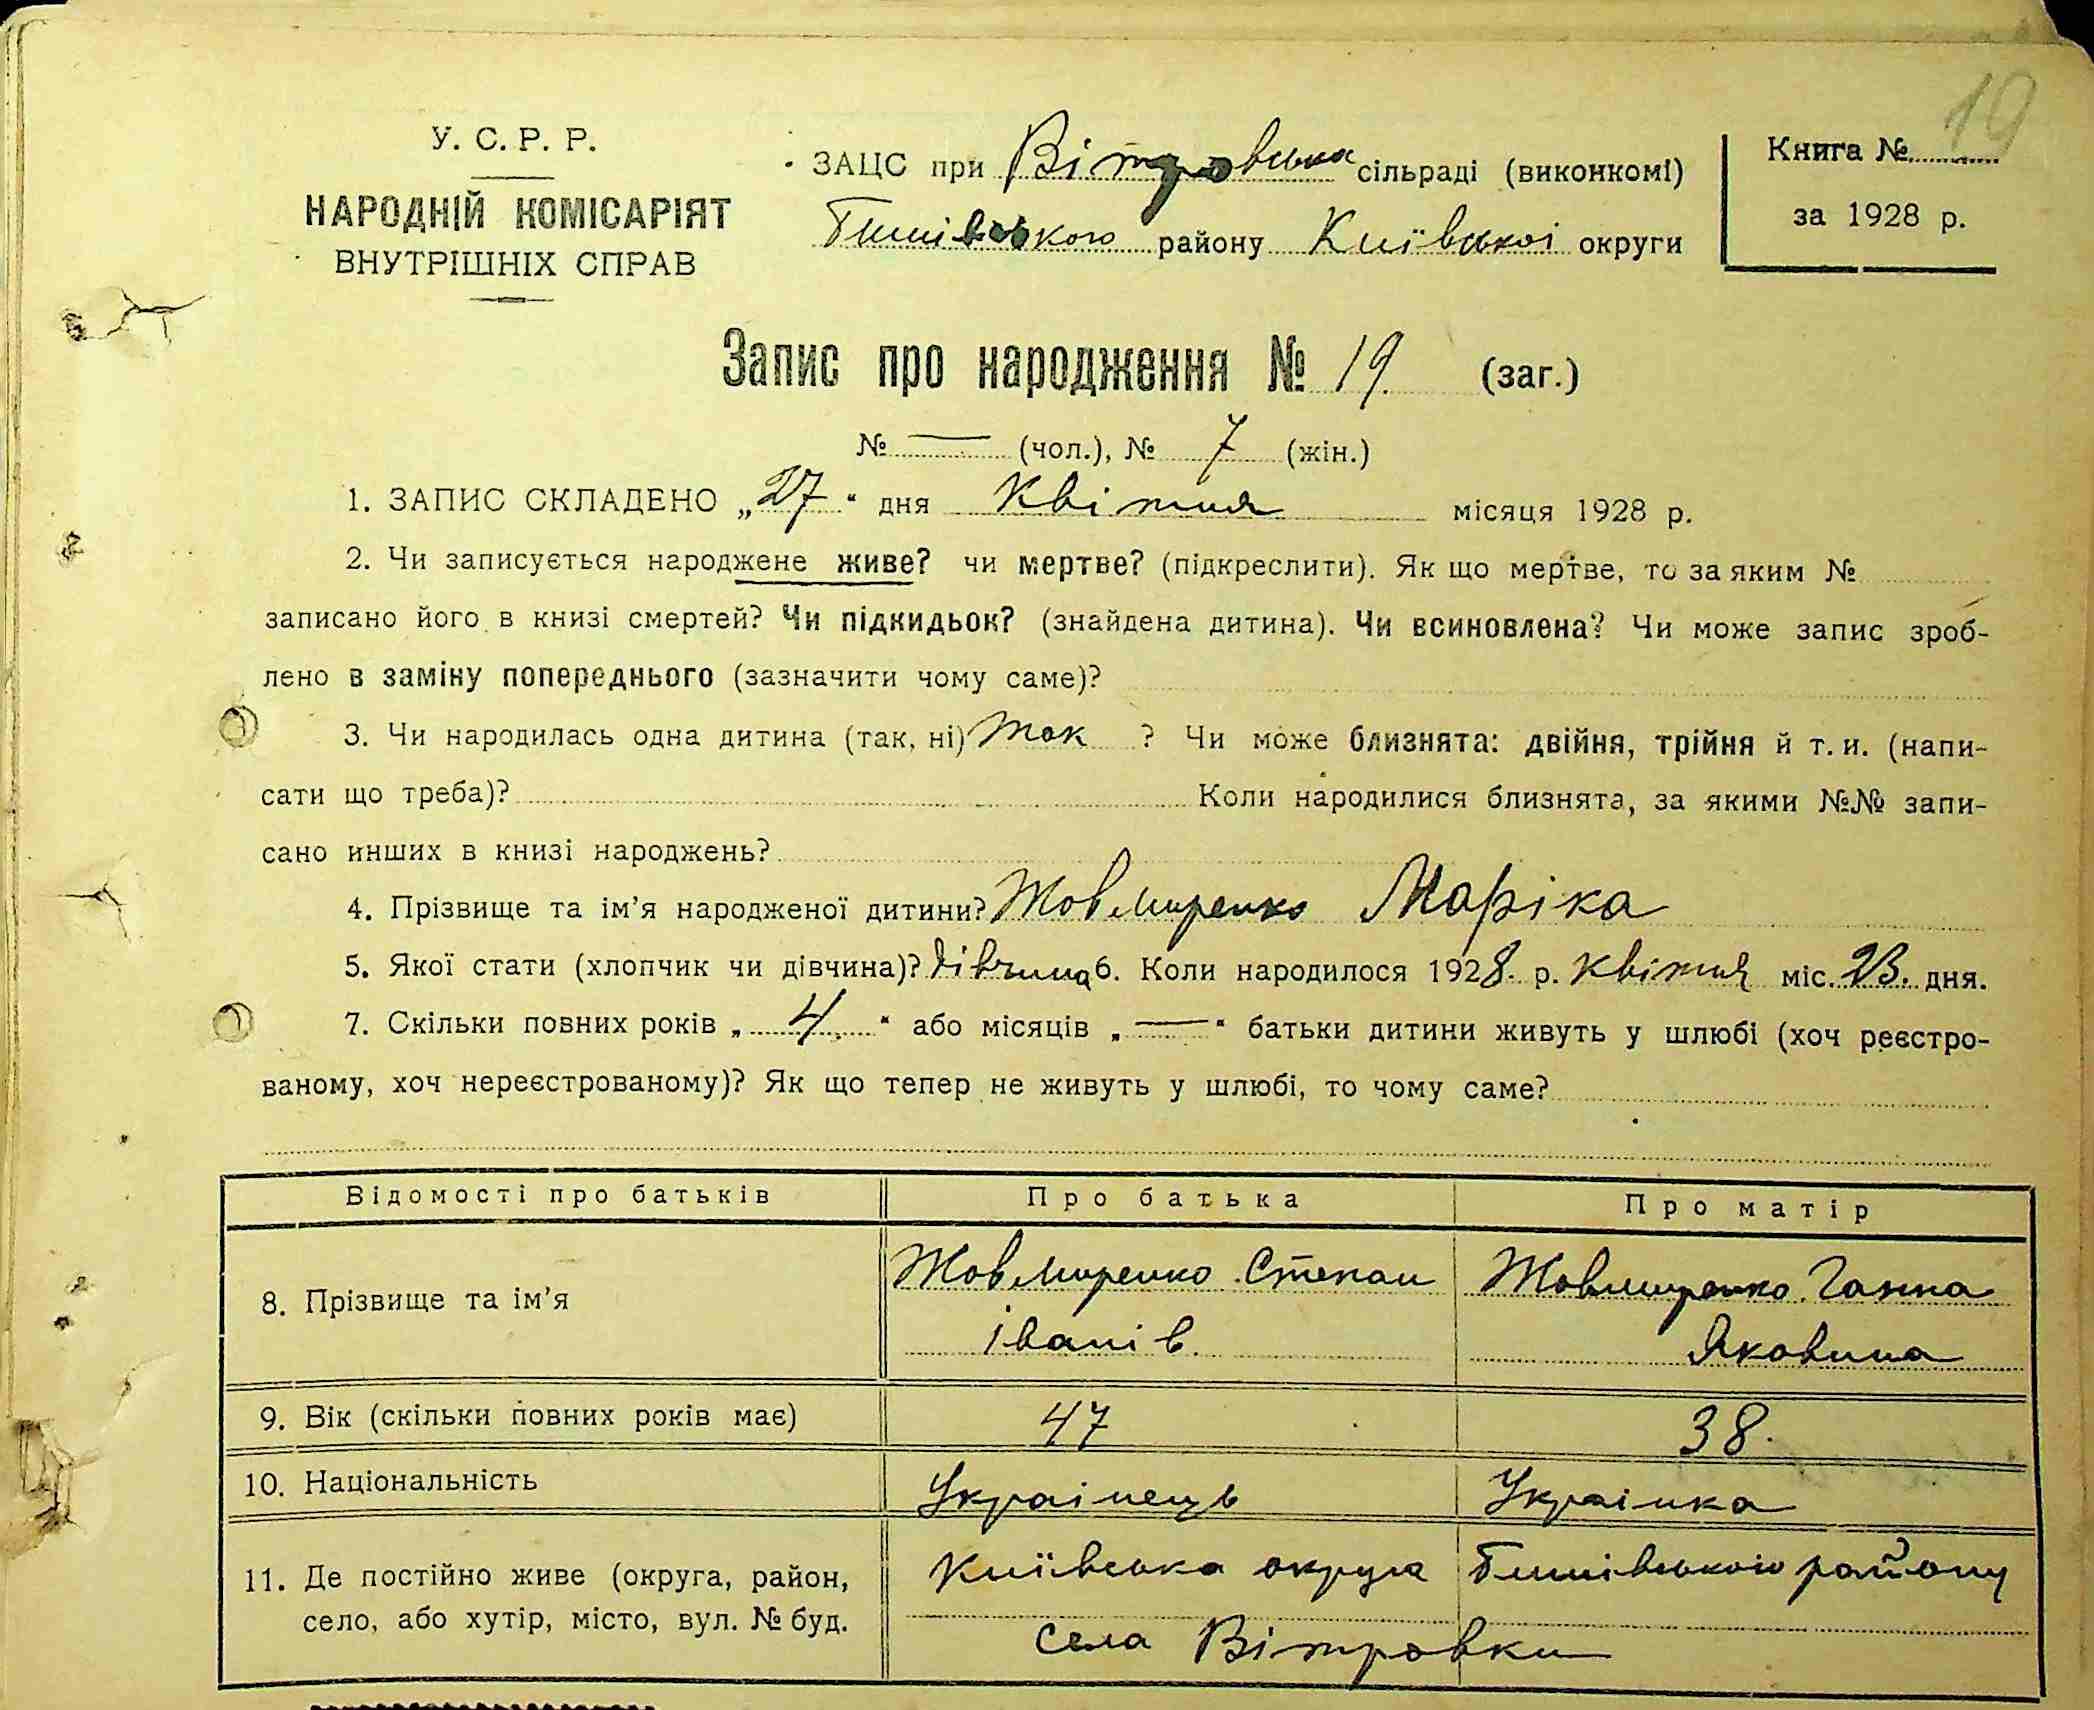 19
У. С. Р. Р.
НАРОДНІЙ КОМІСАРІЯТ
ВНУТРІШНІХ СПРАВ
ЗАЦС при Вітровська сільраді (виконкомі)
Бишівського району Київської округи
Книга №
за 1928 р.
Запис про народження № 19. (заг.)
№ — (чол.), № 7 (жін.)
1. ЗАПИС СКЛАДЕНО „27“ дня Квітня місяця 1928 р.
2. Чи записується народжене живе? чи мертве? (підкреслити). Як що мертве, то за яким №
записано його в книзі смертей? Чи підкидьок? (знайдена дитина). Чи всиновлена? Чи може запис зроб-
лено в заміну попереднього (зазначити чому саме)?
3. Чи народилась одна дитина (так, ні) Так ? Чи може близнята: двійня, трійня й т. и. (напи-
сати що треба)? Коли народилися близнята, за якими №№ запи-
сано инших в книзі народжень?
4. Прізвище та ім’я народженої дитини? Жовмиренко Маріка
5. Якої стати (хлопчик чи дівчина)? дівчина 6. Коли народилося 1928. р. квітня міс. 23. дня.
7. Скільки повних років „4.“ або місяців „—“ батьки дитини живуть у шлюбі (хоч реєстро-
ваному, хоч нереєстрованому)? Як що тепер не живуть у шлюбі, то чому саме?
Відомості про батьків Про батька Про матір
8. Прізвище та ім’я
Жовмиренко Степан
Іванів.
Жовмиренко Ганна
Яковина
9. Вік (скільки повних років має) 47 38.
10. Національність Українець Українка
11. Де постійно живе (округа, район,
село, або хутір, місто, вул. № буд.
Київська округа Бишівського району
села Вітровки